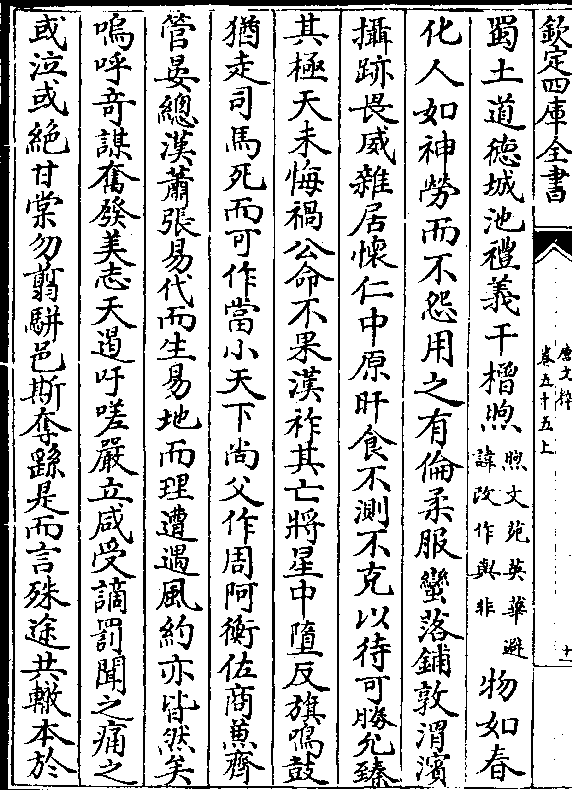 欽定四庫全書
唐文粹
卷五十五上
十一
蜀土道德城池禮義干櫓煦煦文苑英華避諱改作與非物如春
化人如神勞而不怨用之有倫柔服蠻落鋪敦渭濱
攝跡畏威雜居懷仁中原旰食不測不克以待可勝允臻
其極天未悔禍公命不果漢祚其亡將星中墮反旗鳴鼓
猶走司馬死而可作當小天下尚父作周阿衡佐商兼齊
管晏總漢蕭張易代而生易地而理遭遇風約亦皆然矣
嗚呼奇謀奮發美志夭遏吁嗟嚴立咸受謫罰聞之痛之
或泣或絶甘棠勿翦駢邑斯奪繇是而言殊途共轍本於